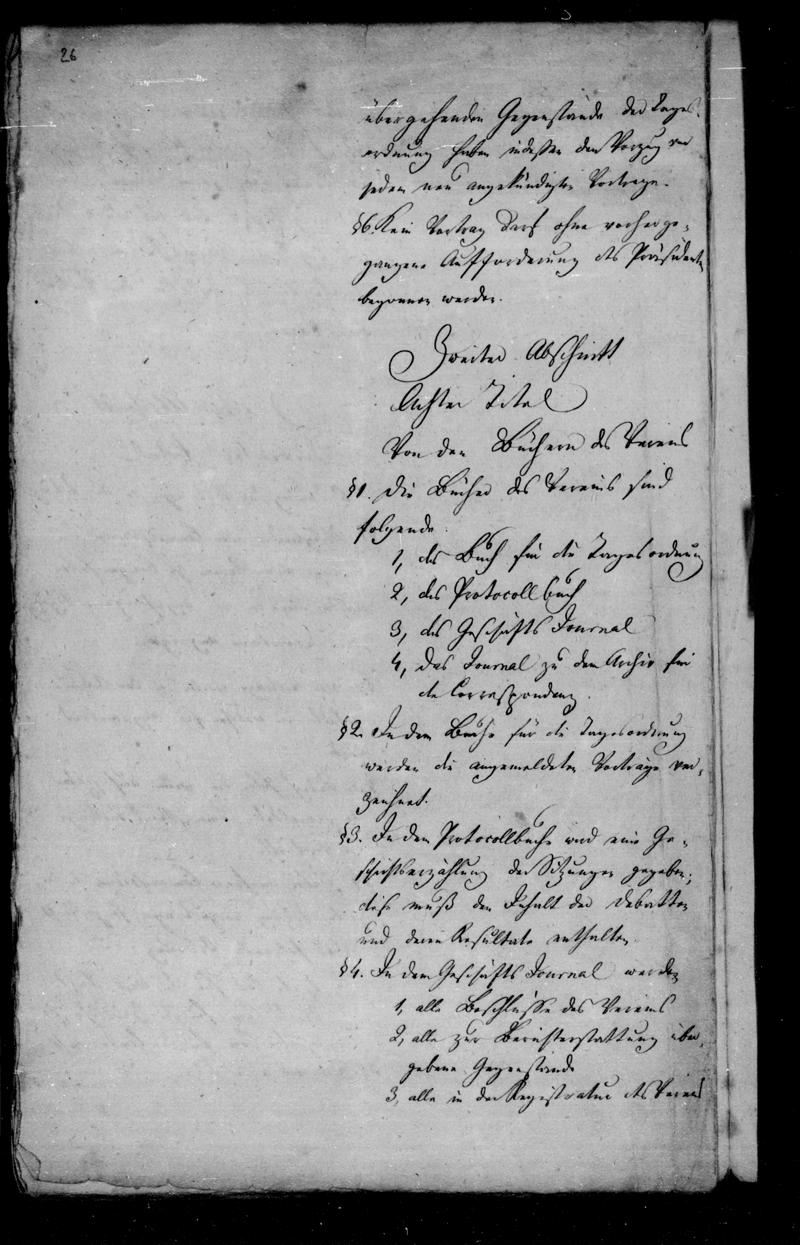 26
übergehenden Gegenstände der Tages-
ordnung haben indessen den Vorzug vor
jedem neu angekündigten Vortrage.
§6. Kein Vortrag darf ohne vorherge-
gangene Aufforderung des Präsidenten
begonnen werden.
Zweiter Abschnitt
Achter Titel
Von den Büchern des Vereins
§1. Die Bücher des Vereins sind
folgende.
1, das Buch für die Tagesordnung
2, das Protocollbuch
3, das Geschäfts Journal
4, das Journal zu dem Archiv für
die Correspondenz.
§2. In dem Buche für die Tagesordnung
werden die angemeldeten Vorträge ver-
zeichnet.
§3. In dem Protocollbuche wird eine Ge-
schichtserzählung der Sitzungen gegeben;
diese muß den Inhalt der Debatten
und deren Resultate enthalten.
§4. In dem Geschäfts Journal werden
1, alle Beschlüsse des Vereins
2, alle zur Berichterstattung über-
gebene Gegenstände
3, alle in der Registratur des Vereins